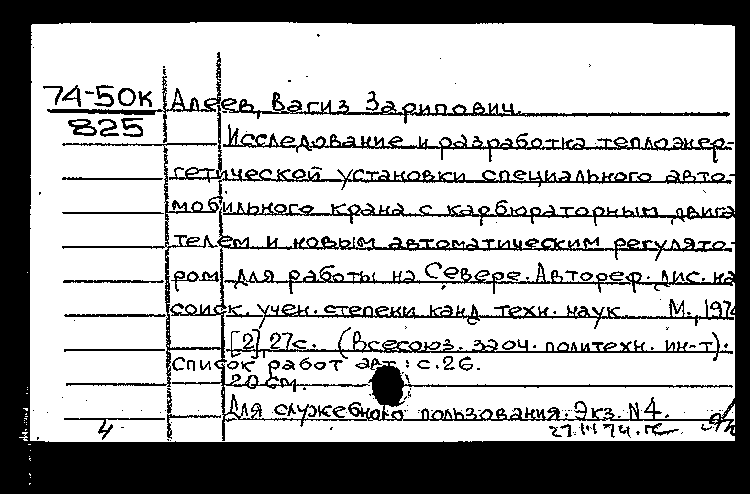 74-50к Алеев, Вагиз Зарипович.
825
Исследование и разработка теплоэнер-
гетической установки специального авто-
мобильного крана с карбюраторным двига
телем и новым автоматическим регулято-
ром для работы на Севере. Автореф. дис. на
соиск. учен. степени канд техн. наук М., 197
[2], 27с. (Всесоюз. заоч. политехн. ин-т).
Список работ авт.: с.26.
20 см.
Для служебного пользования. Экз. N4.
4 27.III 74.